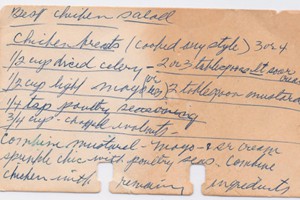 Best chicken salad
Chicken breasts (cooked any style) 3 or 4
1/2 cup diced celery - 2 or 3 tablespoons lt sour cream
1/2 cup light mayo or 2 tablespoon mustard
1/4 tsp poultry seasoning
3/4 cup chopped walnuts -
Combine mustard - mayo & sr cream
sprinkle chic with poultry seas. Combine
chicken with remaining ingredients